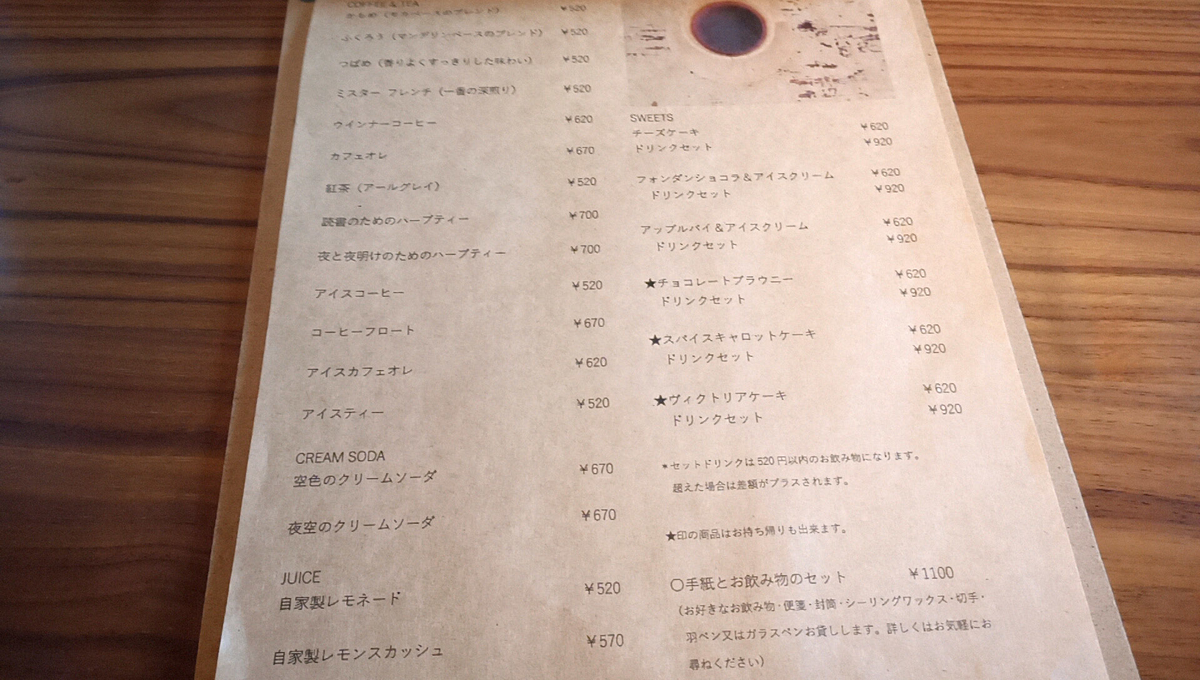 COFFEE & TEA
かもめ（モカベースのブレンド） ¥520
ふくろう（マンデリンベースのブレンド） ¥520
つばめ（香りよくすっきりした味わい） ¥520
ミスター フレンチ（一番の深煎り） ¥520
ウインナーコーヒー ¥620
カフェオレ ¥670
紅茶（アールグレイ） ¥520
読書のためのハーブティー ¥700
夜と夜明けのためのハーブティー ¥700
アイスコーヒー ¥520
コーヒーフロート ¥670
アイスカフェオレ ¥620
アイスティー ¥520
CREAM SODA
空色のクリームソーダ ¥670
夜空のクリームソーダ ¥670
JUICE
自家製レモネード ¥520
自家製レモンスカッシュ ¥570
SWEETS
チーズケーキ ¥620
ドリンクセット ¥920
フォンダンショコラ＆アイスクリーム ¥620
ドリンクセット ¥920
アップルパイ＆アイスクリーム ¥620
ドリンクセット ¥920
★チョコレートブラウニー ¥620
ドリンクセット ¥920
★スパイスキャロットケーキ ¥620
ドリンクセット ¥920
★ヴィクトリアケーキ ¥620
ドリンクセット ¥920
＊セットドリンクは520円以内のお飲み物になります。
超えた場合は差額がプラスされます。
★印の商品はお持ち帰りも出来ます。
〇手紙とお飲み物のセット ¥1100
（お好きなお飲み物・便箋・封筒・シーリングワックス・切手・
羽ペン又はガラスペンお貸しします。詳しくはお気軽にお
尋ねください）